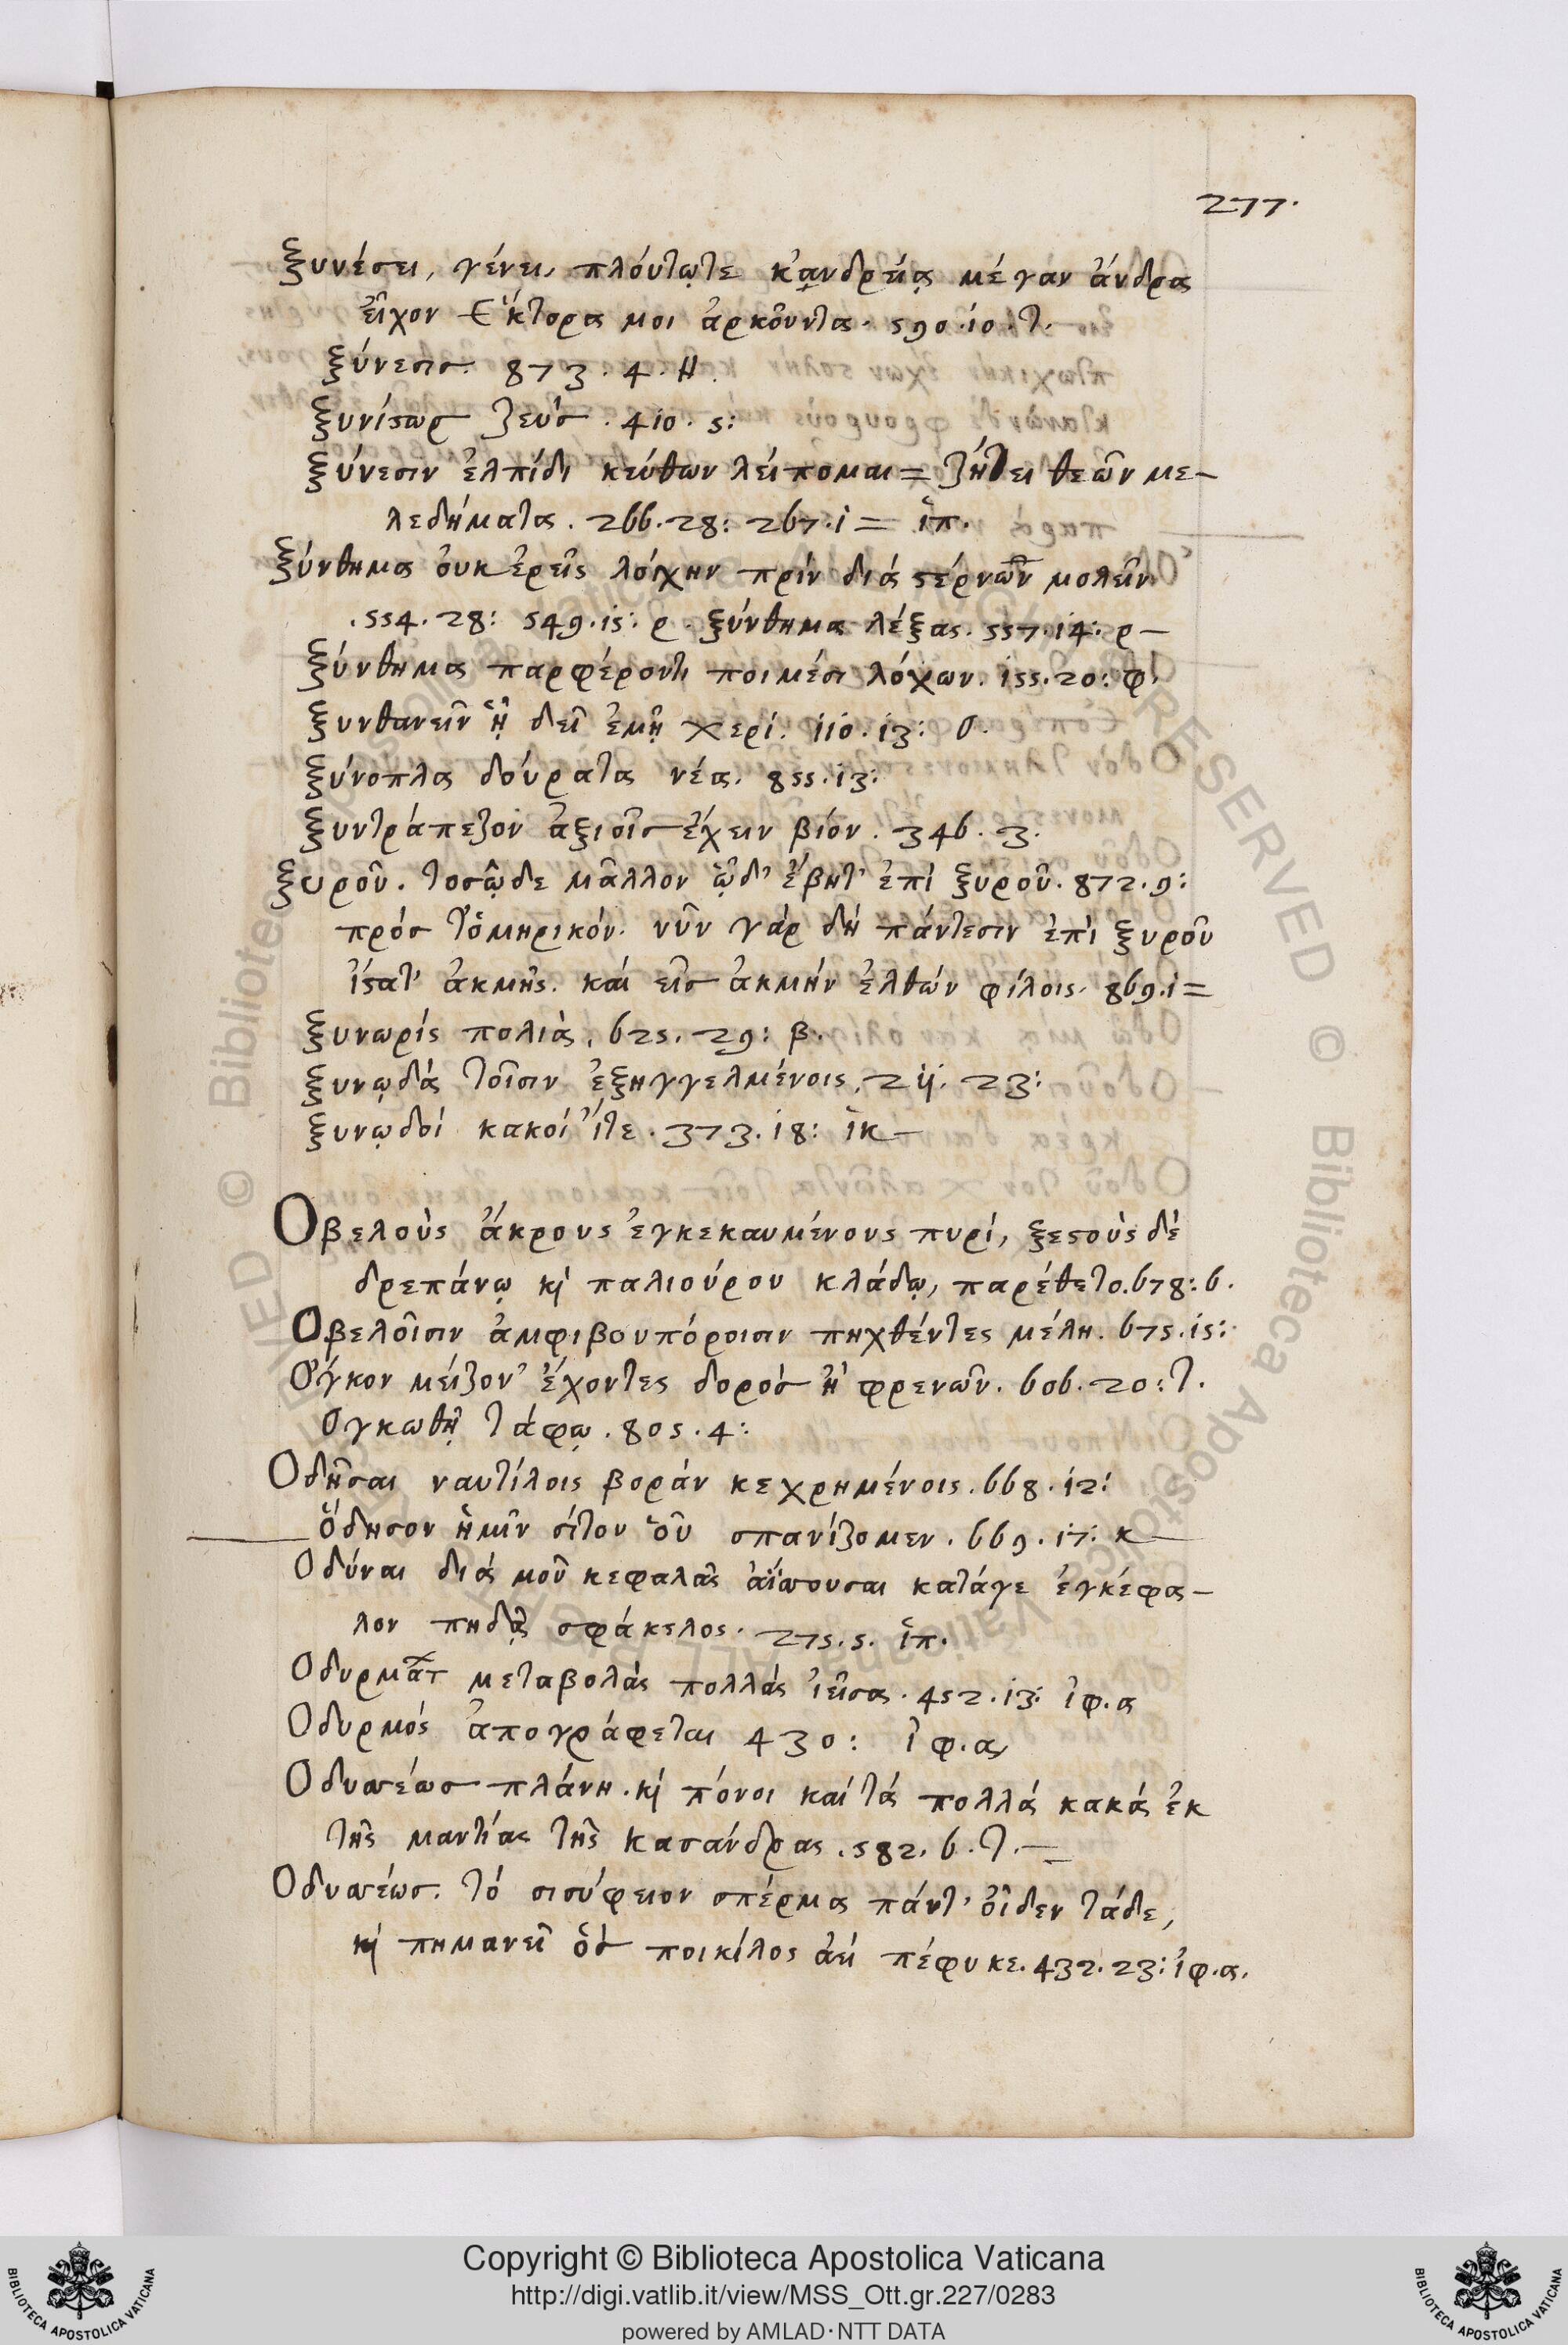 277.
ξυνέσει, γένει, πλούτῳτε κἀνδρείᾳ μέγαν ἄνδρα
εἶχον Ἕκτορα μοι ἀρκοῦντα. 590.10.τ.
ξύνεσις. 873.4.Η.
ξυνίστωρ ζεύσ. 410.5:
ξύνεσιν ἐλπίδι κεύθων λείπομαι = ζήτει θεῶν με-
λεδήματα. 266.28: 267.1 = ἱπ.
ξύνθημα ὀυκ ἐρεῖς λόγχην πρίν διά στέρνων μολεῖν.
.554.28: 549.15: ρ. ξύνθημα λέξας. 557.14: ρ-
ξύνθημα παρφέροντι ποιμέσι λόχων. 155.20: φ.
ξυνθανεῖν ᾗ δεῖ ἐμῇ χερί. 110.13: ο.
ξύνοπλα δούρατα νέα. 855.13:
ξυντράπεζον ἀξιοῖσ ἔχειν βίον. 346.3.
ξυροῦ. τοσῷδε μᾶλλον ᾧδ' ἔβητ' ἐπὶ ξυροῦ. 872.9:
πρόσ τὁμηρικόν. νῦν γάρ δή πάντεσιν ἐπὶ ξυροῦ
ἵστατ' ἀκμῆς. καί εἰσ ἀκμήν ἐλθών φίλοις. 869.1=
ξυνωρίς πολιὰ. 625.29: β.
ξυνῳδά τοῖσιν ἐξηγγελμένοις. 211. 23:
ξυνῳδοί κακοί ἴτε. 373.18: ἱκ-
Οβελοὺς ἄκρους ἐγκεκαυμένους πυρί, ξεστοὺς δὲ
δρεπάνῳ κὶ παλιούρου κλάδῳ, παρέθετο. 678:6.
Οβελοῖσιν ἀμφιβουπόροισιν πηχθέντες μέλη. 675.15:
Ὄγκον μείζον' ἔχοντες δορόσ ἢ φρενῶν. 606.20: τ.
ογκωθῇ τάφῳ. 805.4:
Οδῆσαι ναυτίλοις βοράν κεχρημένοις. 668.12:
ὅδησον ἡμῖν σίτον οὗ σπανίζομεν. 669.17: κ-
Οδύναι διά μοῦ κεφαλᾶς ἀΐσσουσαι κατάγε ἐγκέφα-
λον πηδᾷ σφάκελος. 275.5. ἱπ.
Οδυρμάτ μεταβολάς πολλάς ἱεῖσα. 452.13: ἰφ.α
Οδυρμός ἀπογράφεται 430: ἰφ.α
Οδυσσέωσ πλάνη. κὶ πόνοι καί τά πολλά κακά ἐκ
τῆς μαντίας τῆς κασάνδρας. 582.6.τ.-
Οδυσσέωσ. τό σισύφειον σπέρμα πάντ' οἶδεν τάδε,
κὶ πημανεῖ ὅσ ποικίλος ἀεί πέφυκε. 432.23: ἰφ.α.
Copyright © Biblioteca Apostolica Vaticana
http://digi.vatlib.it/view/MSS_Ott.gr.227/0283
powered by AMLAD·NTT DATA